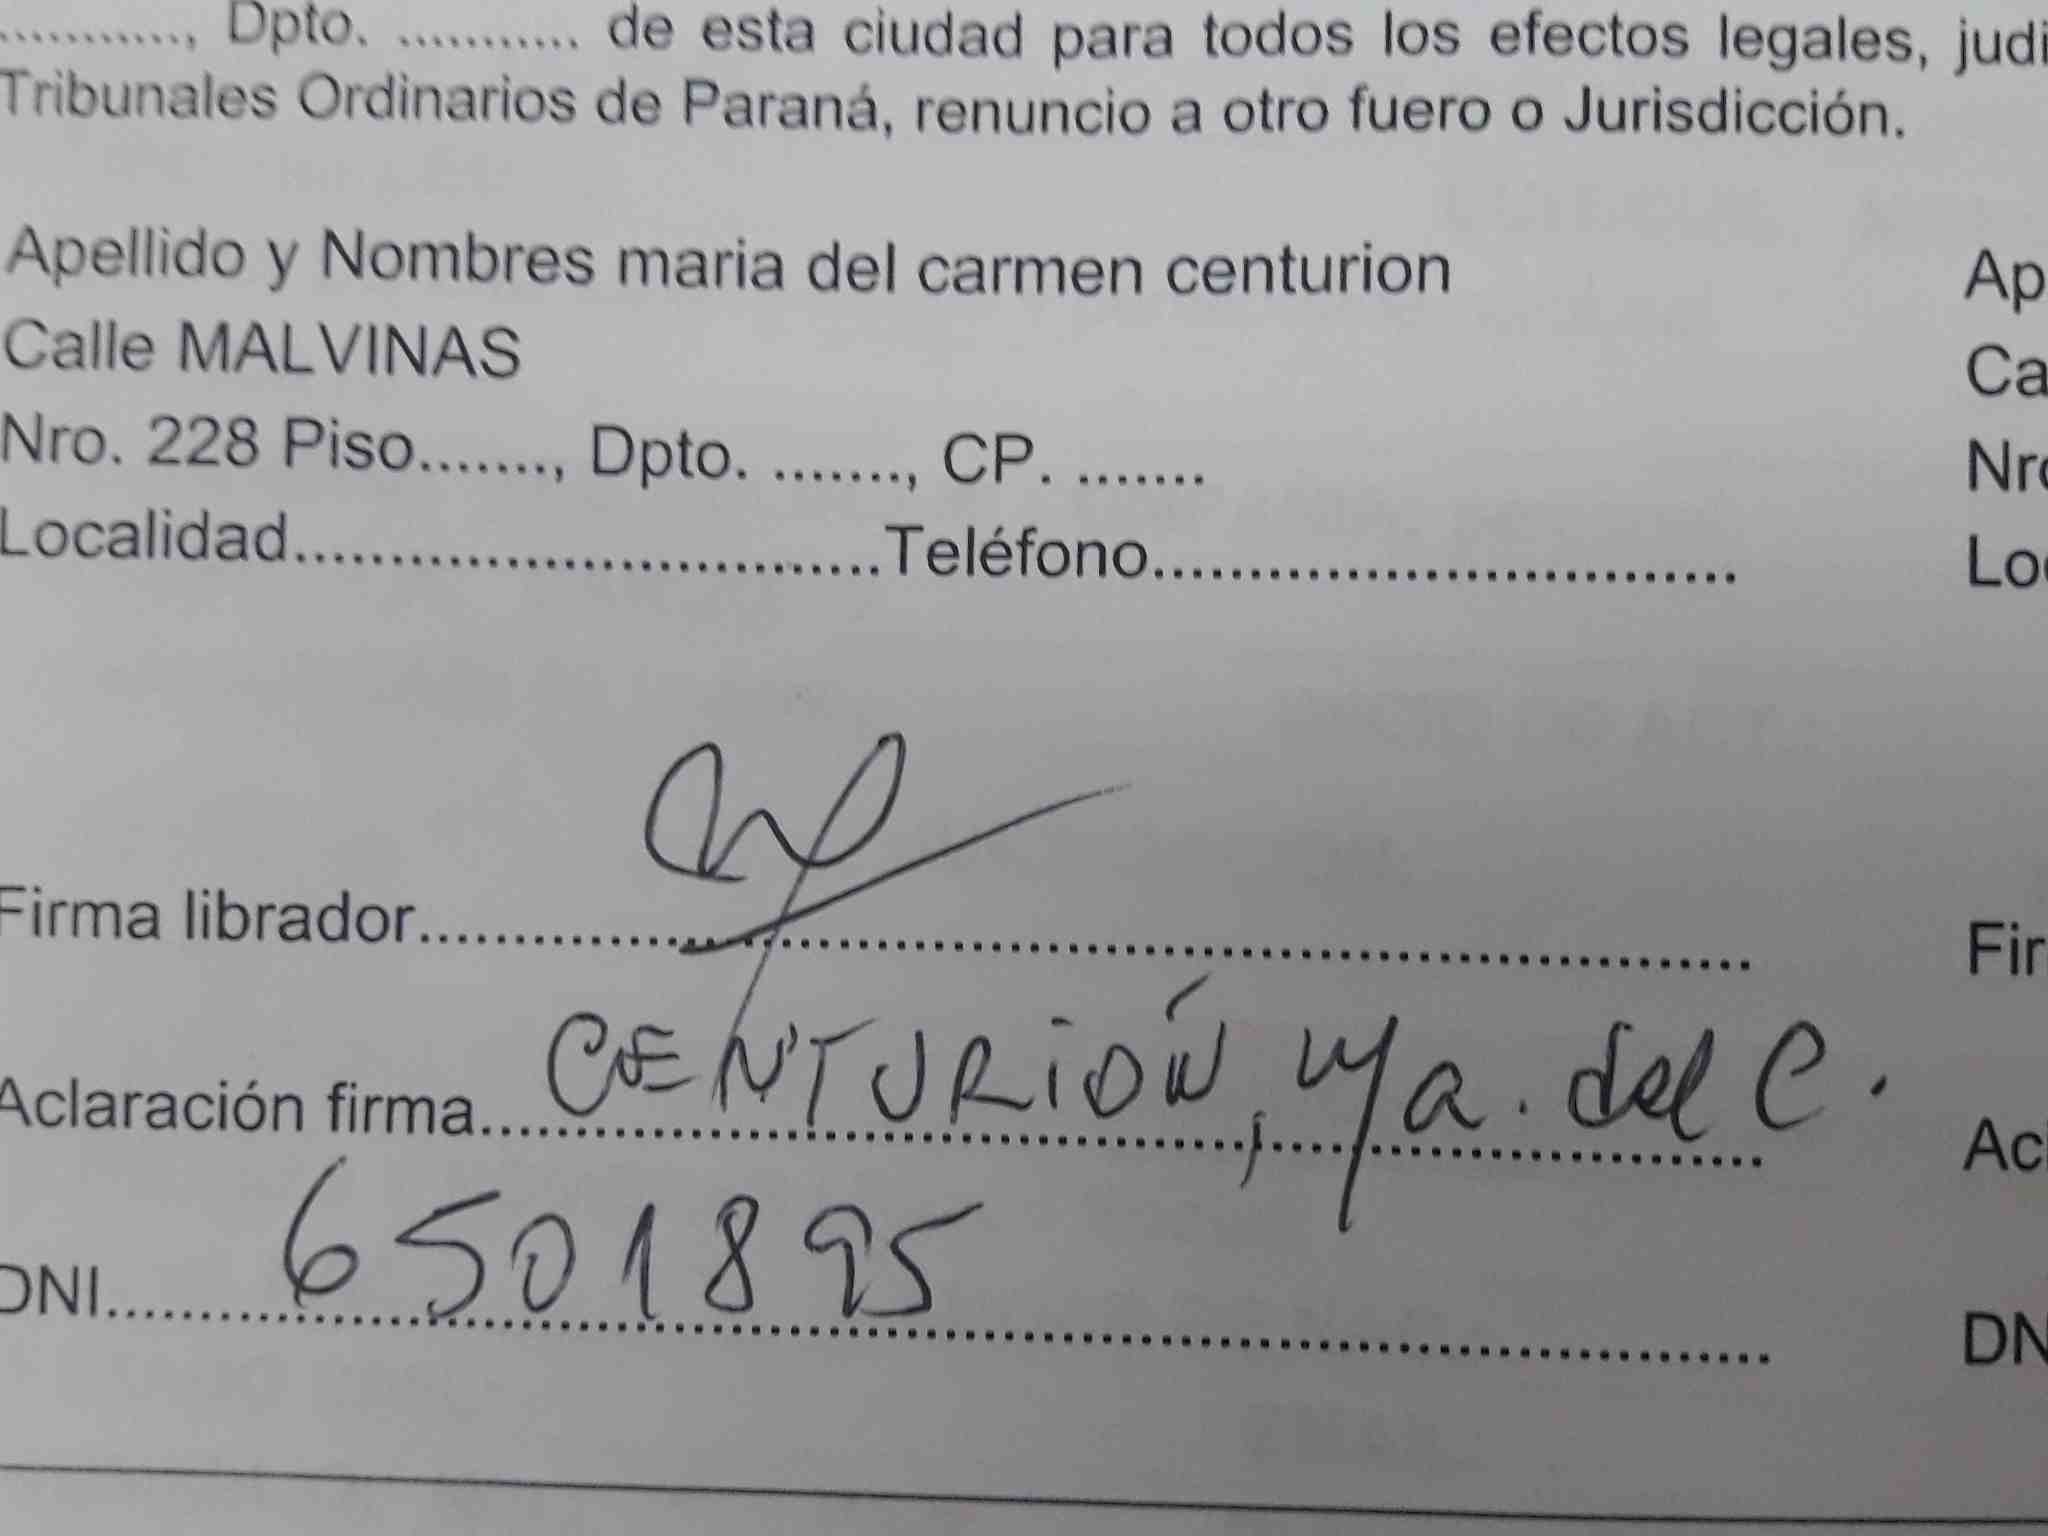 ..........., Dpto. ........... de esta ciudad para todos los efectos legales, judi
Tribunales Ordinarios de Paraná, renuncio a otro fuero o Jurisdicción.
Apellido y Nombres maria del carmen centurion
Calle MALVINAS
Nro. 228 Piso......., Dpto. ......., CP. .......
Localidad...............................Teléfono...............................
Firma librador.......................................................................
Aclaración firma... CENTURIÓN, Ma. del C.
DNI... 6501895
Ap
Ca
Nro
Loc
Fir
Acl
DN